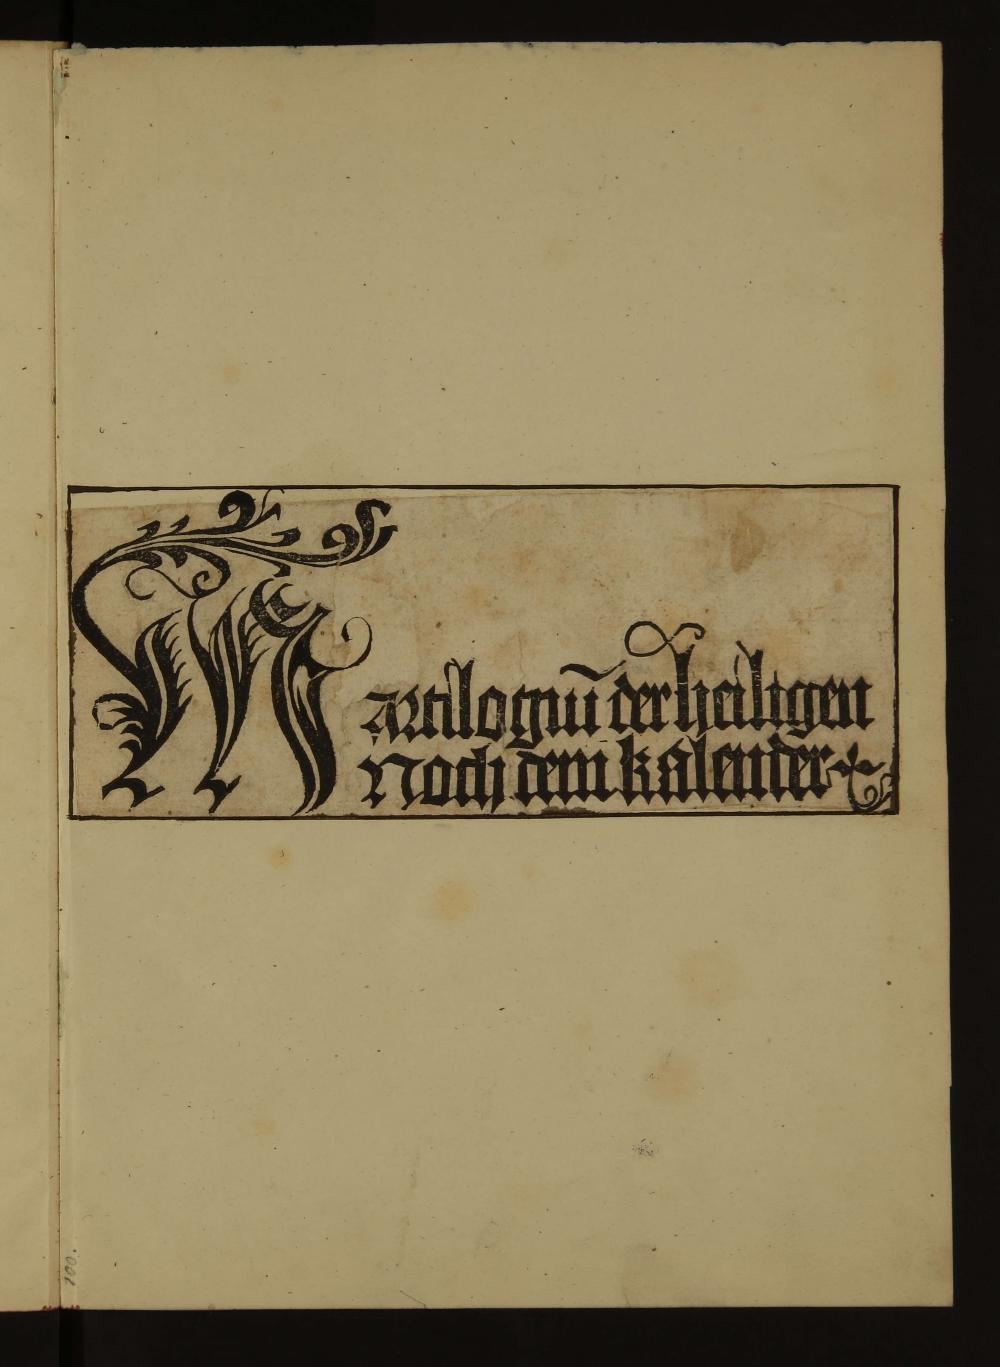 Martilogiū der heiligen
Noch dem kalender
100.